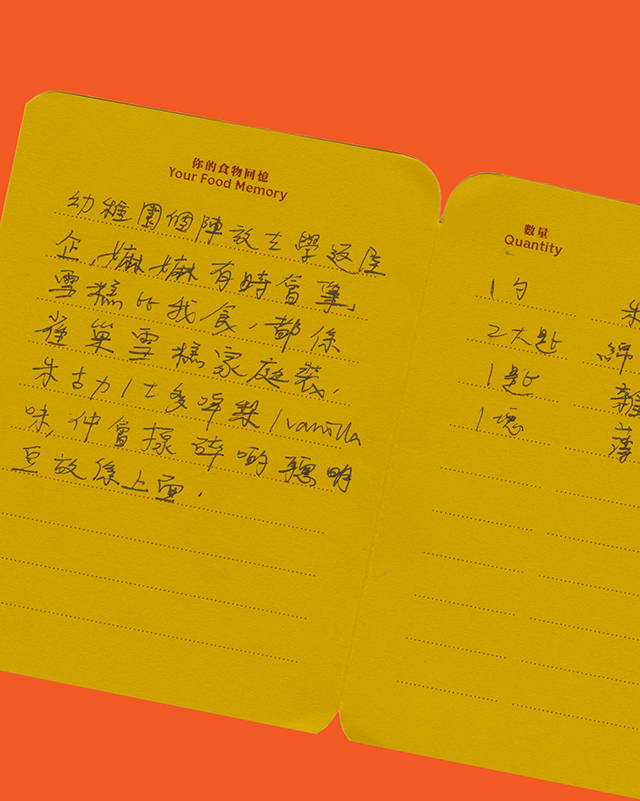 你的食物回憶
Your Food Memory
幼稚園個陣放左學返屋
企,嫲嫲有時會拿
雪糕比我食,都係
雀巢雪糕家庭裝,
朱古力/士多啤梨/vanilla
味,仲會揼碎啲聰明
豆放係上面,
數量
Quantity
1勺 朱
2大匙 綿
1匙 雜
1塊 薄